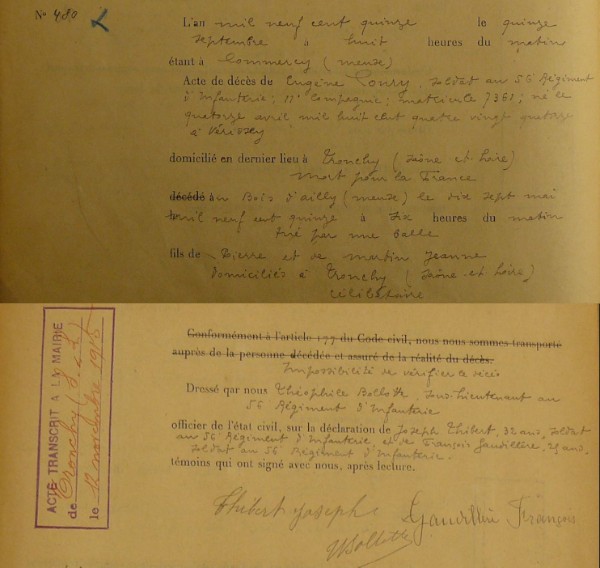 N° 480
L'an mil neuf cent quinze le quinze
septembre à huit heures du matin
étant à Commercy (meuse)
Acte de décès de Eugène Coury, soldat au 56 Régiment
d'Infanterie, 11e Compagnie, matricule 7361, né le
quatorze avril mil huit cent quatre vingt quatorze
à Vérissey
domicilié en dernier lieu à Tronchy (Saône et Loire)
mort pour la France
décédé au Bois d'ailly (meuse) le dix sept mai
mil neuf cent quinze à dix heures du matin
tué par une balle
fils de Pierre et de martin Jeanne
domiciliés à Tronchy (Saône et Loire)
célibataire
Conformément à l'article 77 du Code civil, nous nous sommes transporté
auprès de la personne décédée et assuré de la réalité du décès.
Impossibilité de vérifier le décès
Dressé qar nous Théophile Bollotte, sous-lieutenant au
56 Régiment d'Infanterie
officier de l'état civil, sur la déclaration de Joseph Thibert, 32 ans, soldat
au 56 Régiment d'Infanterie et de François Gaudillère, 25 ans,
soldat au 56 Régiment d'Infanterie.
témoins qui ont signé avec nous, après lecture.
Thibert Joseph Gaudillère François
Bollotte
ACTE TRANSCRIT A LA MAIRIE
de Tronchy (S. et L.)
le 12 novembre 1915